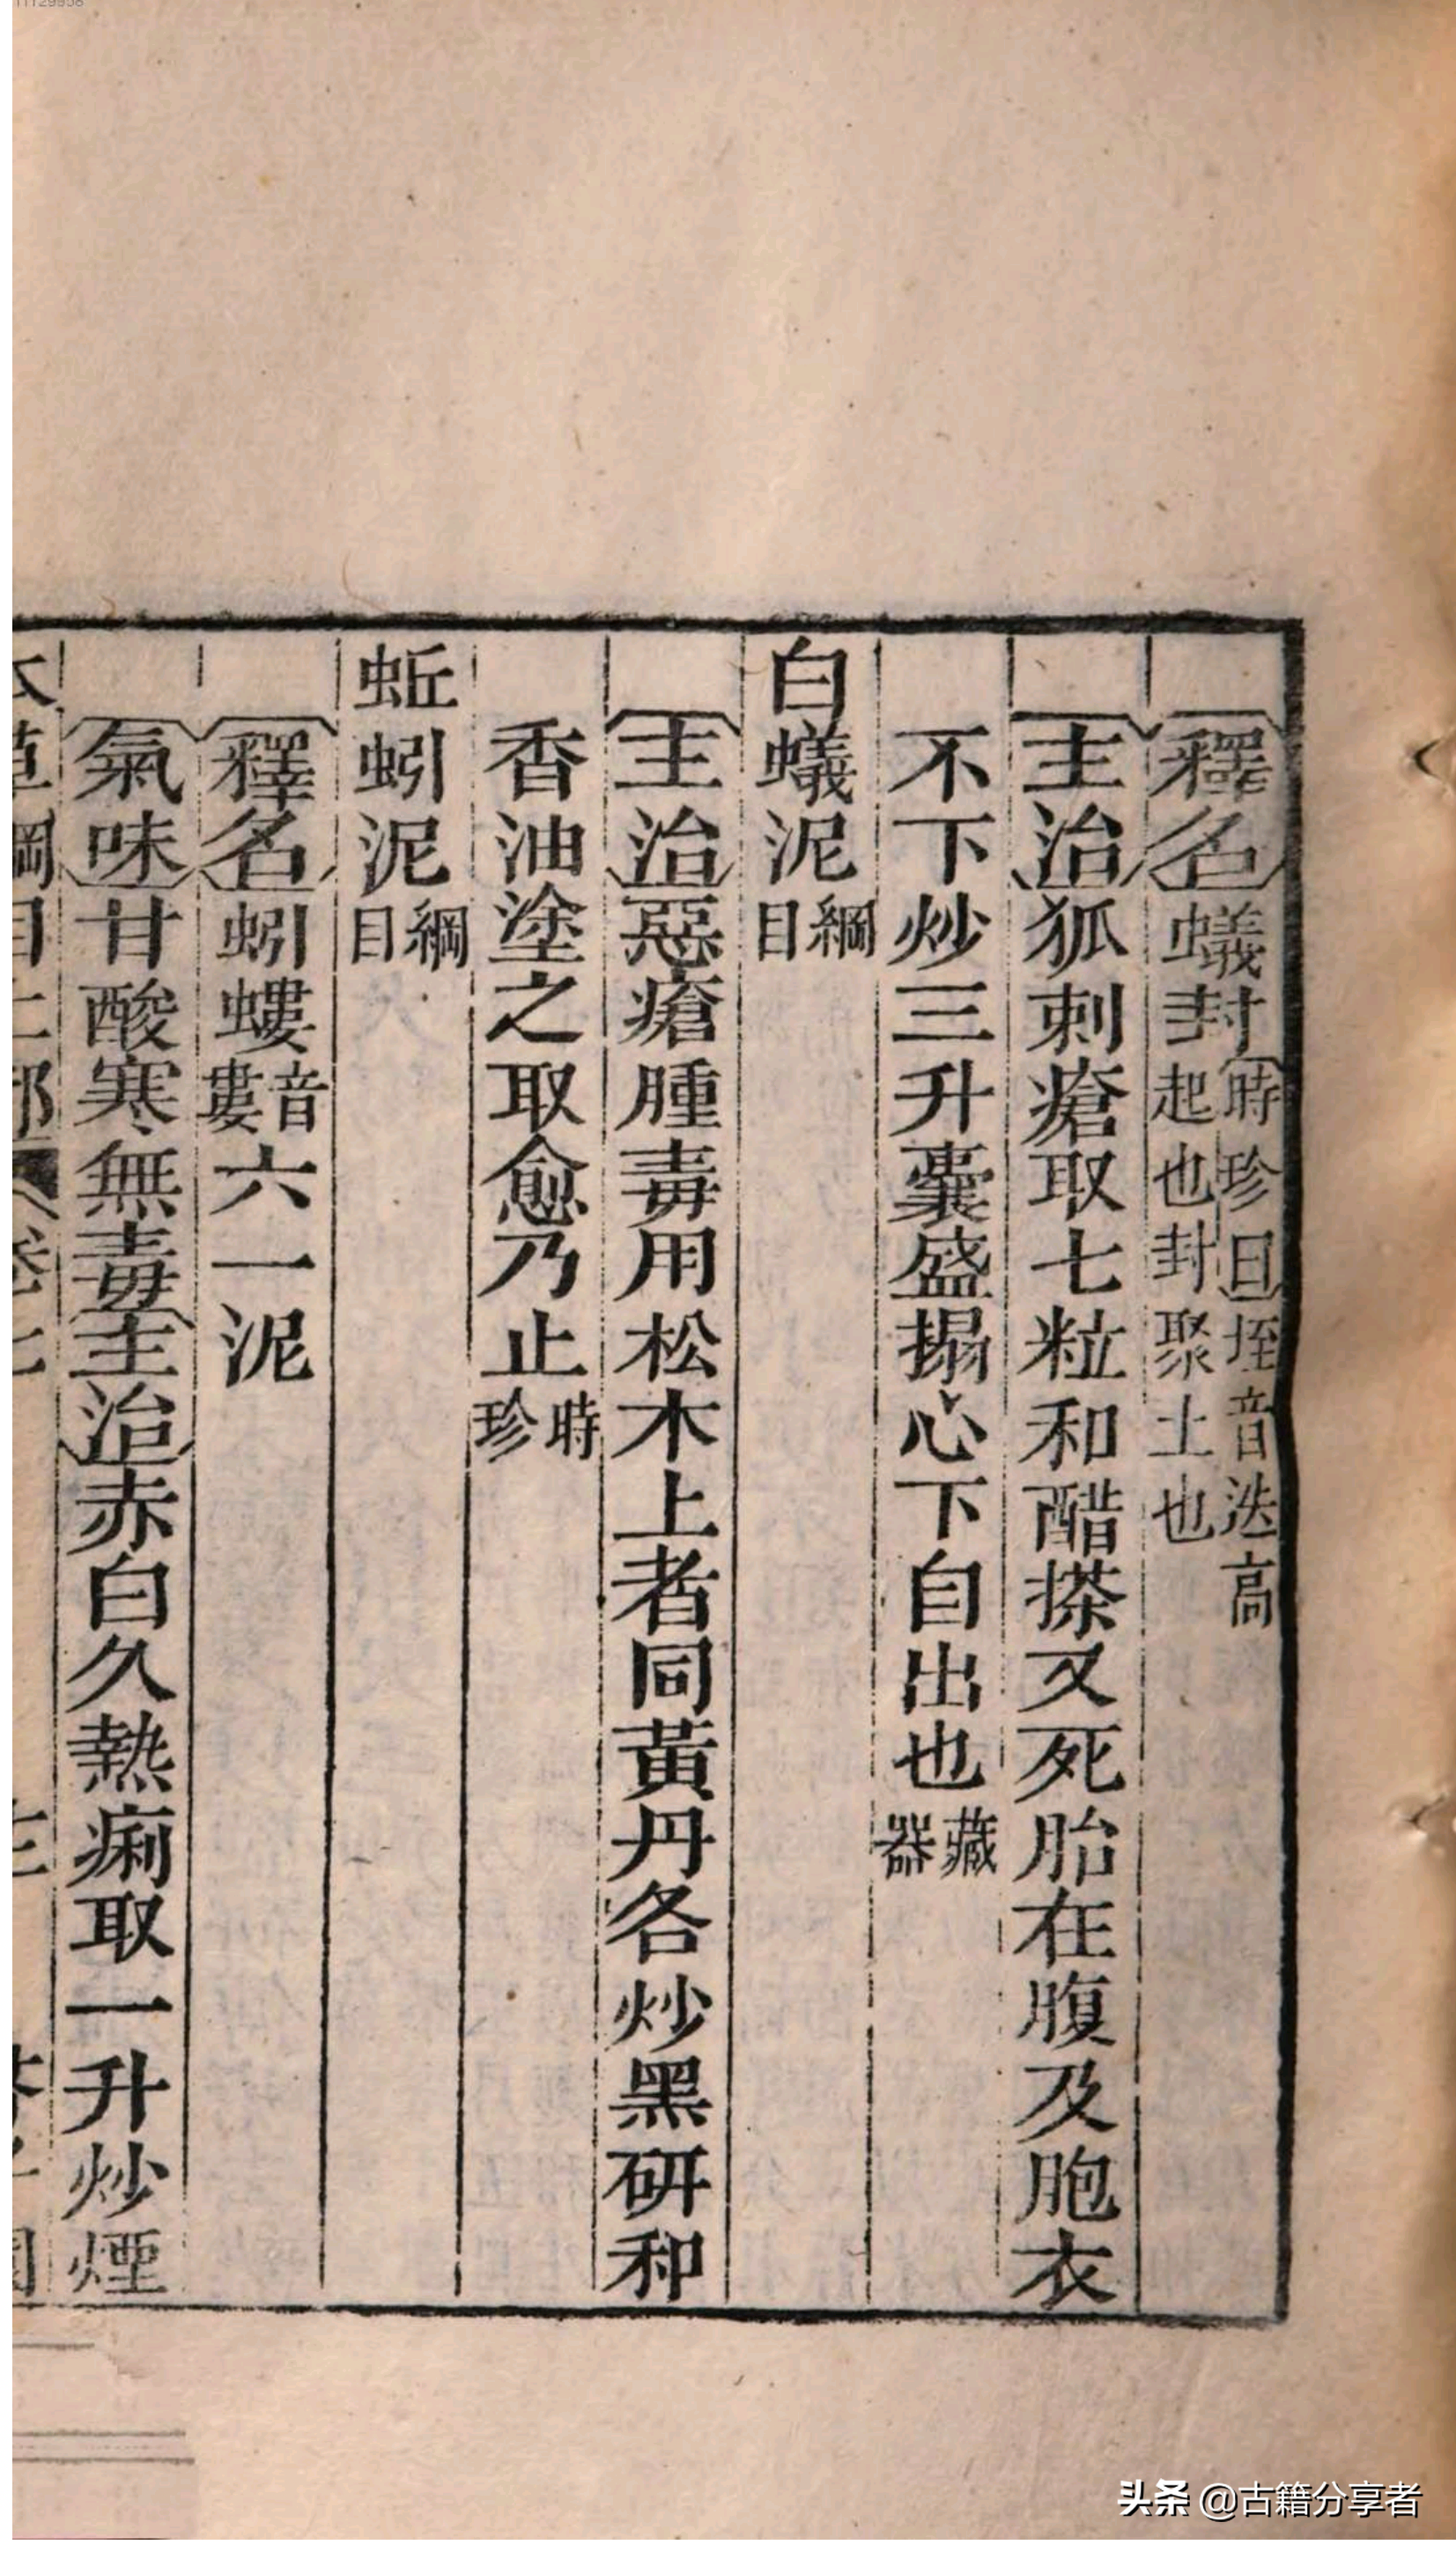 釋名蟻封時珍曰垤音迭高起也封聚土也
主治狐刺瘡取七粒和醋搽又死胎在腹及胞衣
不下炒三升囊盛搨心下自出也藏器
白蟻泥綱目
主治惡瘡腫毒用松木上者同黃丹各炒黑研和
香油塗之取愈乃止時珍
蚯蚓泥綱目
釋名蚓螻音婁六一泥
氣味甘酸寒無毒主治赤白久熱痢取一升炒煙
頭条 @古籍分享者